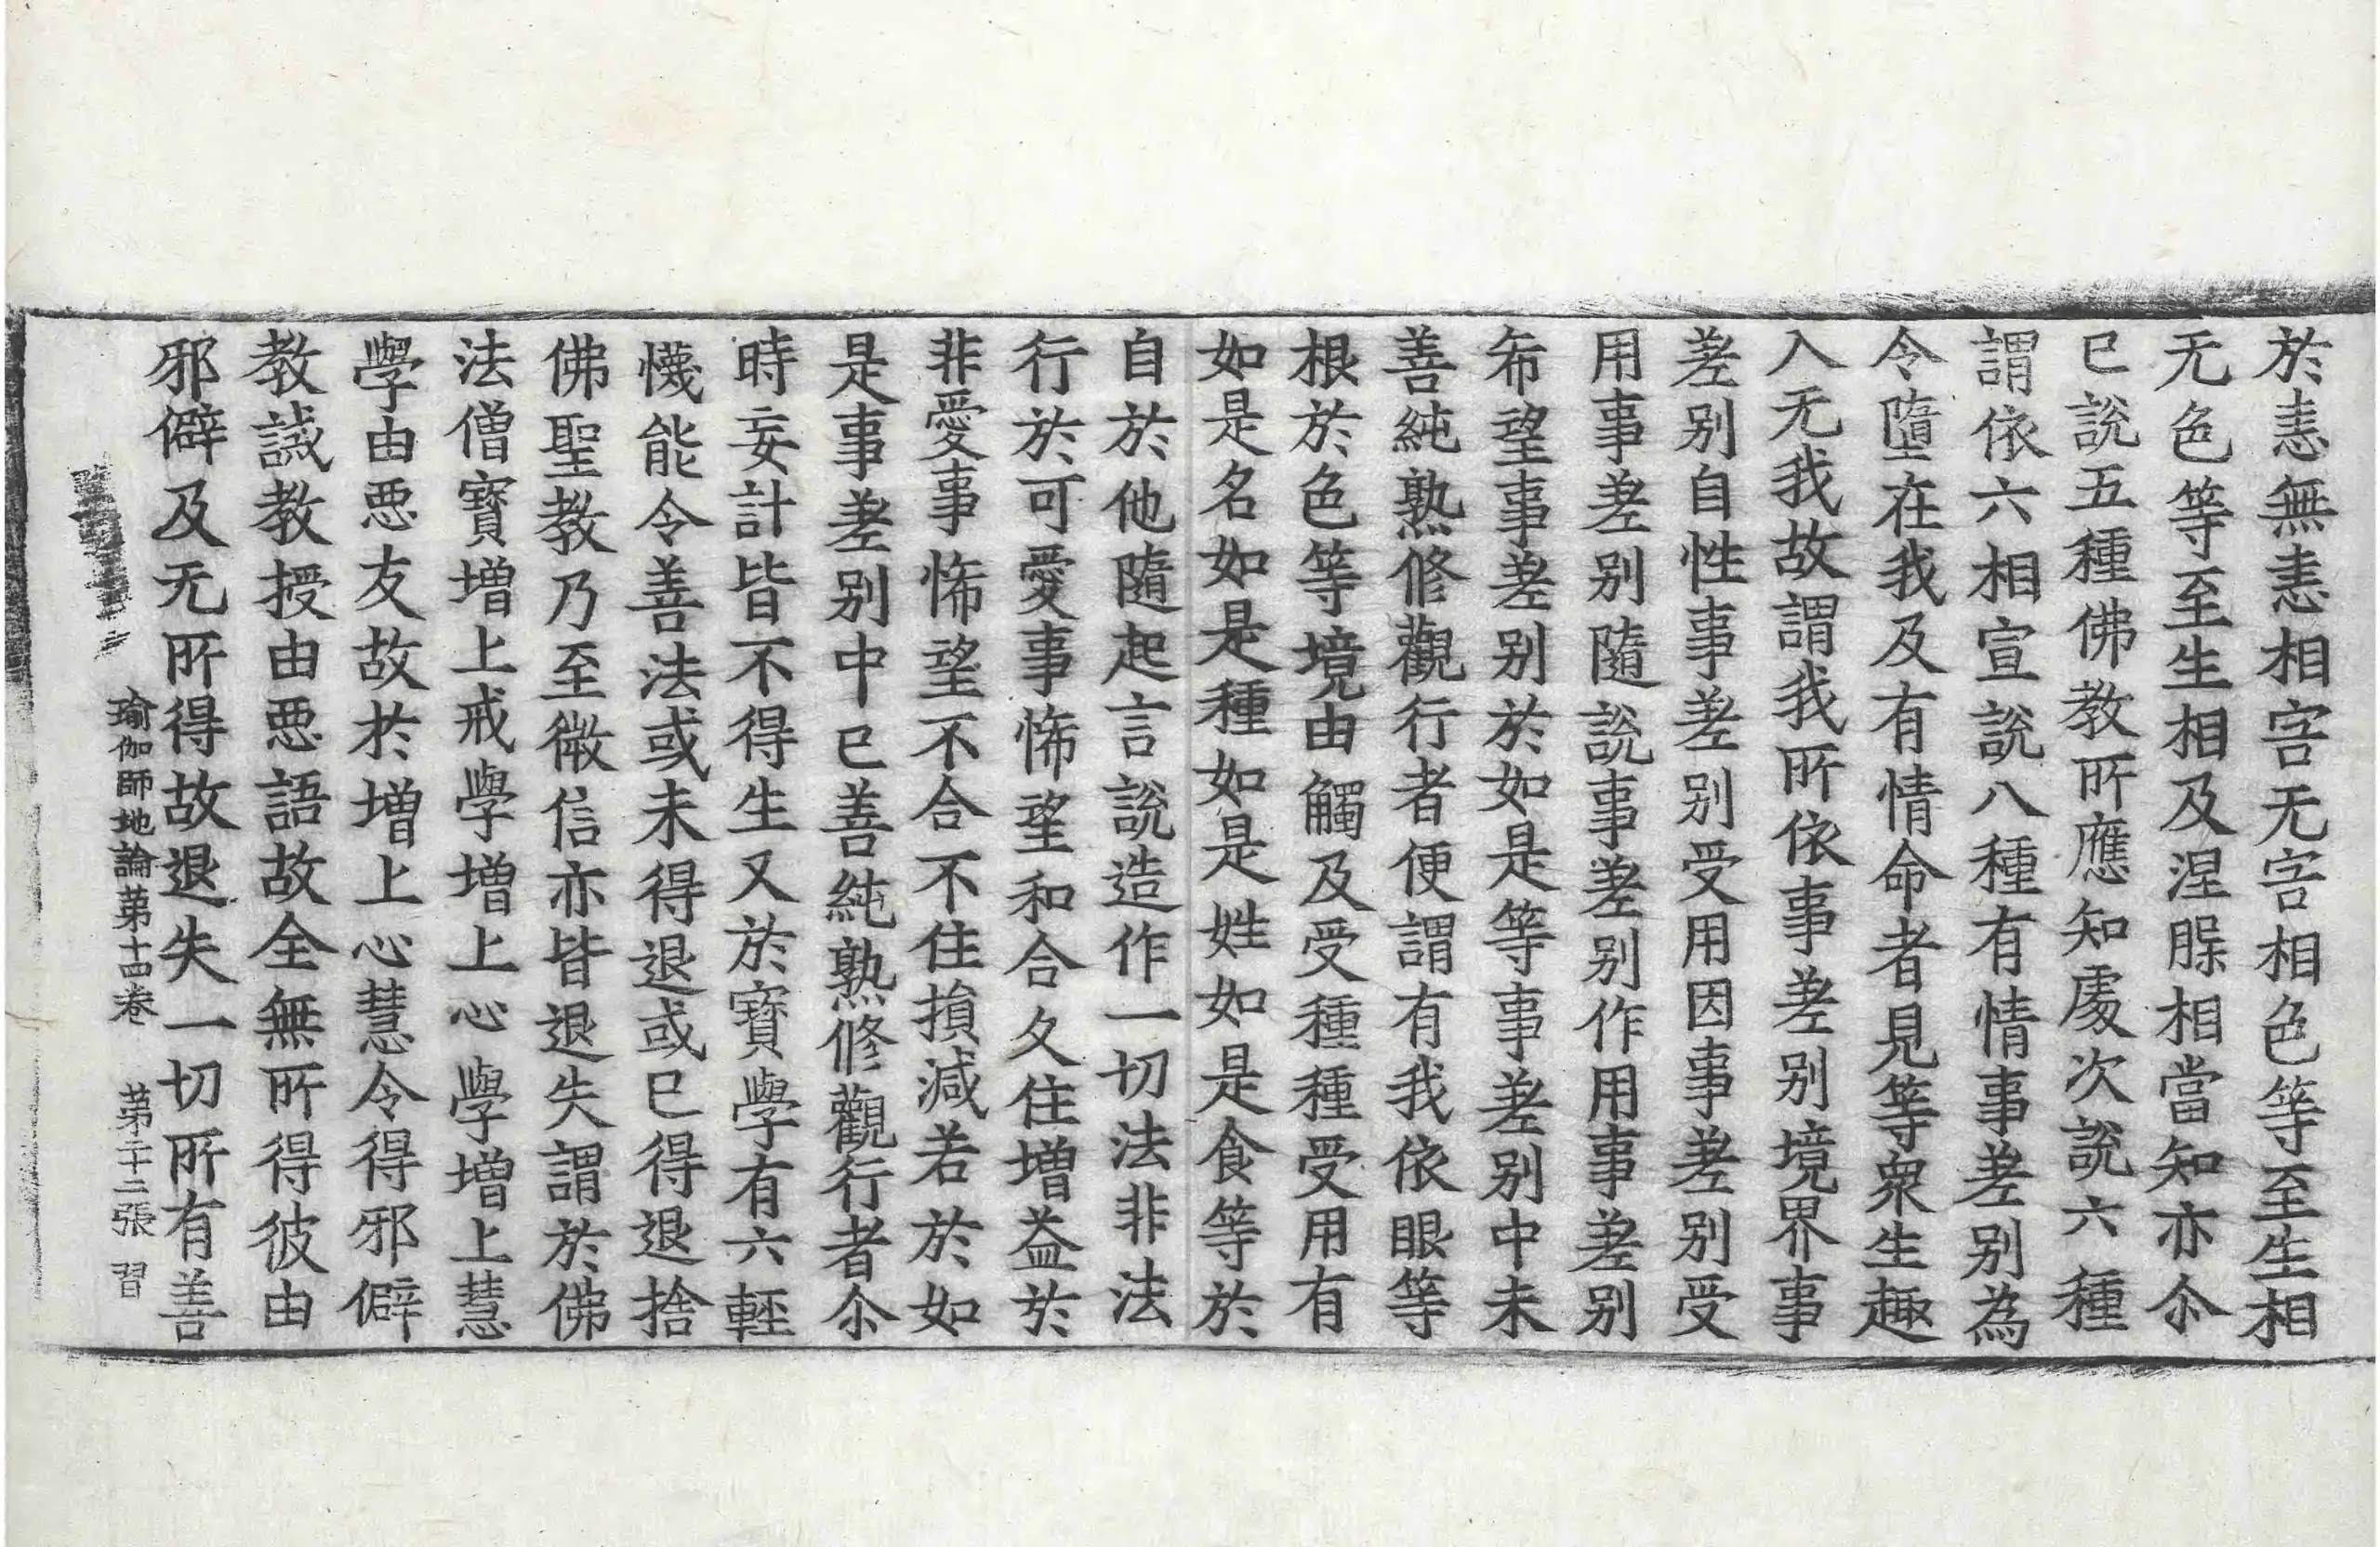 於恚無恚相害无害相色等至生相
无色等至生相及涅槃相當知亦尒
已說五種佛教所應知處次說六種
謂依六相宣說八種有情事差别為
令墮在我及有情命者見等衆生趣
入无我故謂我所依事差别境界事
差别自性事差别受用因事差别受
用事差别隨說事差别作用事差别
希望事差别於如是等事差别中未
善純熟修觀行者便謂有我依眼等
根於色等境由觸及受種種受用有
如是名如是種如是姓如是食等於
自於他隨起言說造作一切法非法
行於可愛事悕望和合久住增益於
非愛事悕望不合不住損減若於如
是事差别中已善純熟修觀行者尒
時妄計皆不得生又於寶學有六輕
懱能令善法或未得退或已得退捨
佛聖教乃至微信亦皆退失謂於佛
法僧寶增上戒學增上心學增上慧
學由惡友故於增上心慧令得邪僻
教誡教授由惡語故全無所得彼由
邪僻及无所得故退失一切所有善
瑜伽師地論第十四卷 第二十二張 習